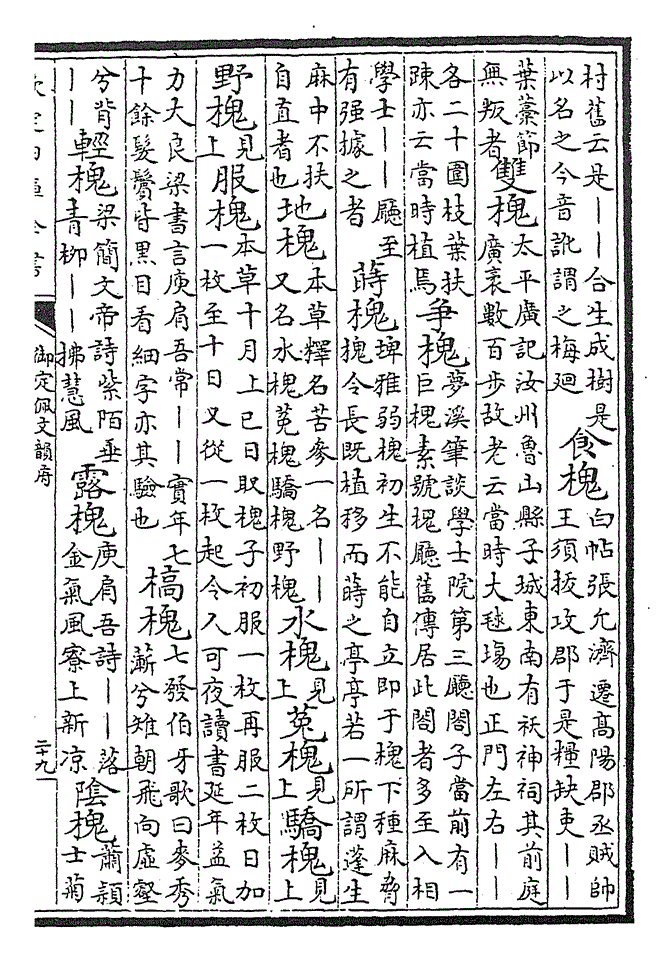 村舊云是——合生成樹是以名之今音訛謂之梅廻 食槐 白帖張允濟遷高陽郡丞賊帥王須拔攻郡于是糧缺吏——
葉藁節無叛者 雙槐 太平廣記汝州魯山縣子城東南有祆神祠其前庭廣袤數百步故老云當時大毬場也正門左右——
各二十圍枝葉扶疎亦云當時植焉 爭槐 夢溪筆談學士院第三廳閤子當前有一巨槐素號槐廳舊傳居此閤者多至入相
學士——廳至有强據之者 蒔槐 埤雅弱槐初生不能自立即于槐下種麻脅槐令長既植移而蒔之亭亭若一所謂蓬生
麻中不扶自直者也 地槐 本草釋名苦參一名——又名水槐菟槐驕槐野槐 水槐 見上 菟槐 見上 驕槐 見上
野槐 見上 服槐 本草十月上巳日取槐子初服一枚再服二枚日加一枚至十日又從一枚起令人可夜讀書延年益氣
力大良梁書言庾肩吾常——實年七十餘髮鬢皆黑目看細字亦其驗也 槁槐 七發伯牙歌曰麥秀蔪兮雉朝飛向虛壑
兮背—— 輕槐 梁簡文帝詩紫陌垂青柳——拂慧風 露槐 庾肩吾詩——落金氣風寮上新凉 陰槐 蕭頴士菊
欽定四庫全書 御定佩文韻府 二十九